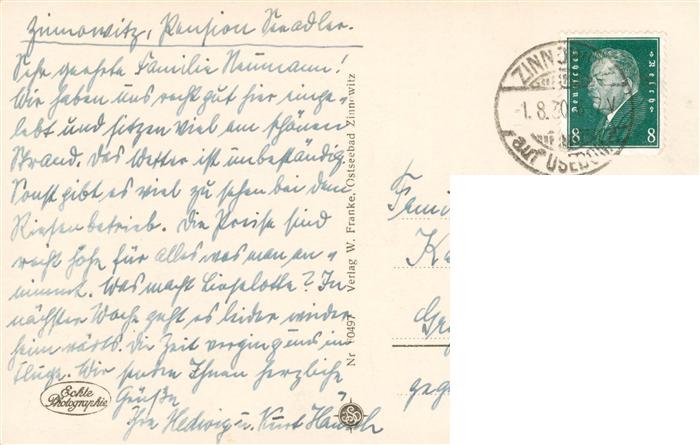 Zinnowitz, Pension Seeadler.
Sehr geehrte Familie Neumann!
Wir haben uns recht gut hier einge-
lebt und sitzen viel am schönen
Strand. Das Wetter ist unbeständig.
Sonst gibt es viel zu sehen bei dem
Riesenbetrieb. Die Preise sind
recht hohe für alles was man an-
nimmt. Was macht Lieselotte? In
nächster Woche geht es leider wieder
heimwärts. Die Zeit verging uns im
Fluge. Wir senden Ihnen herzliche
Grüße
Ihre Hedwig u. Kurt
Echte
Photographie
Nr 10497 Verlag W. Franke, Ostseebad Zinnowitz
ZINNOWITZ
1.8.30
auf USEDOM
Deutsches Reich
8 8
Fami
Ka
gege